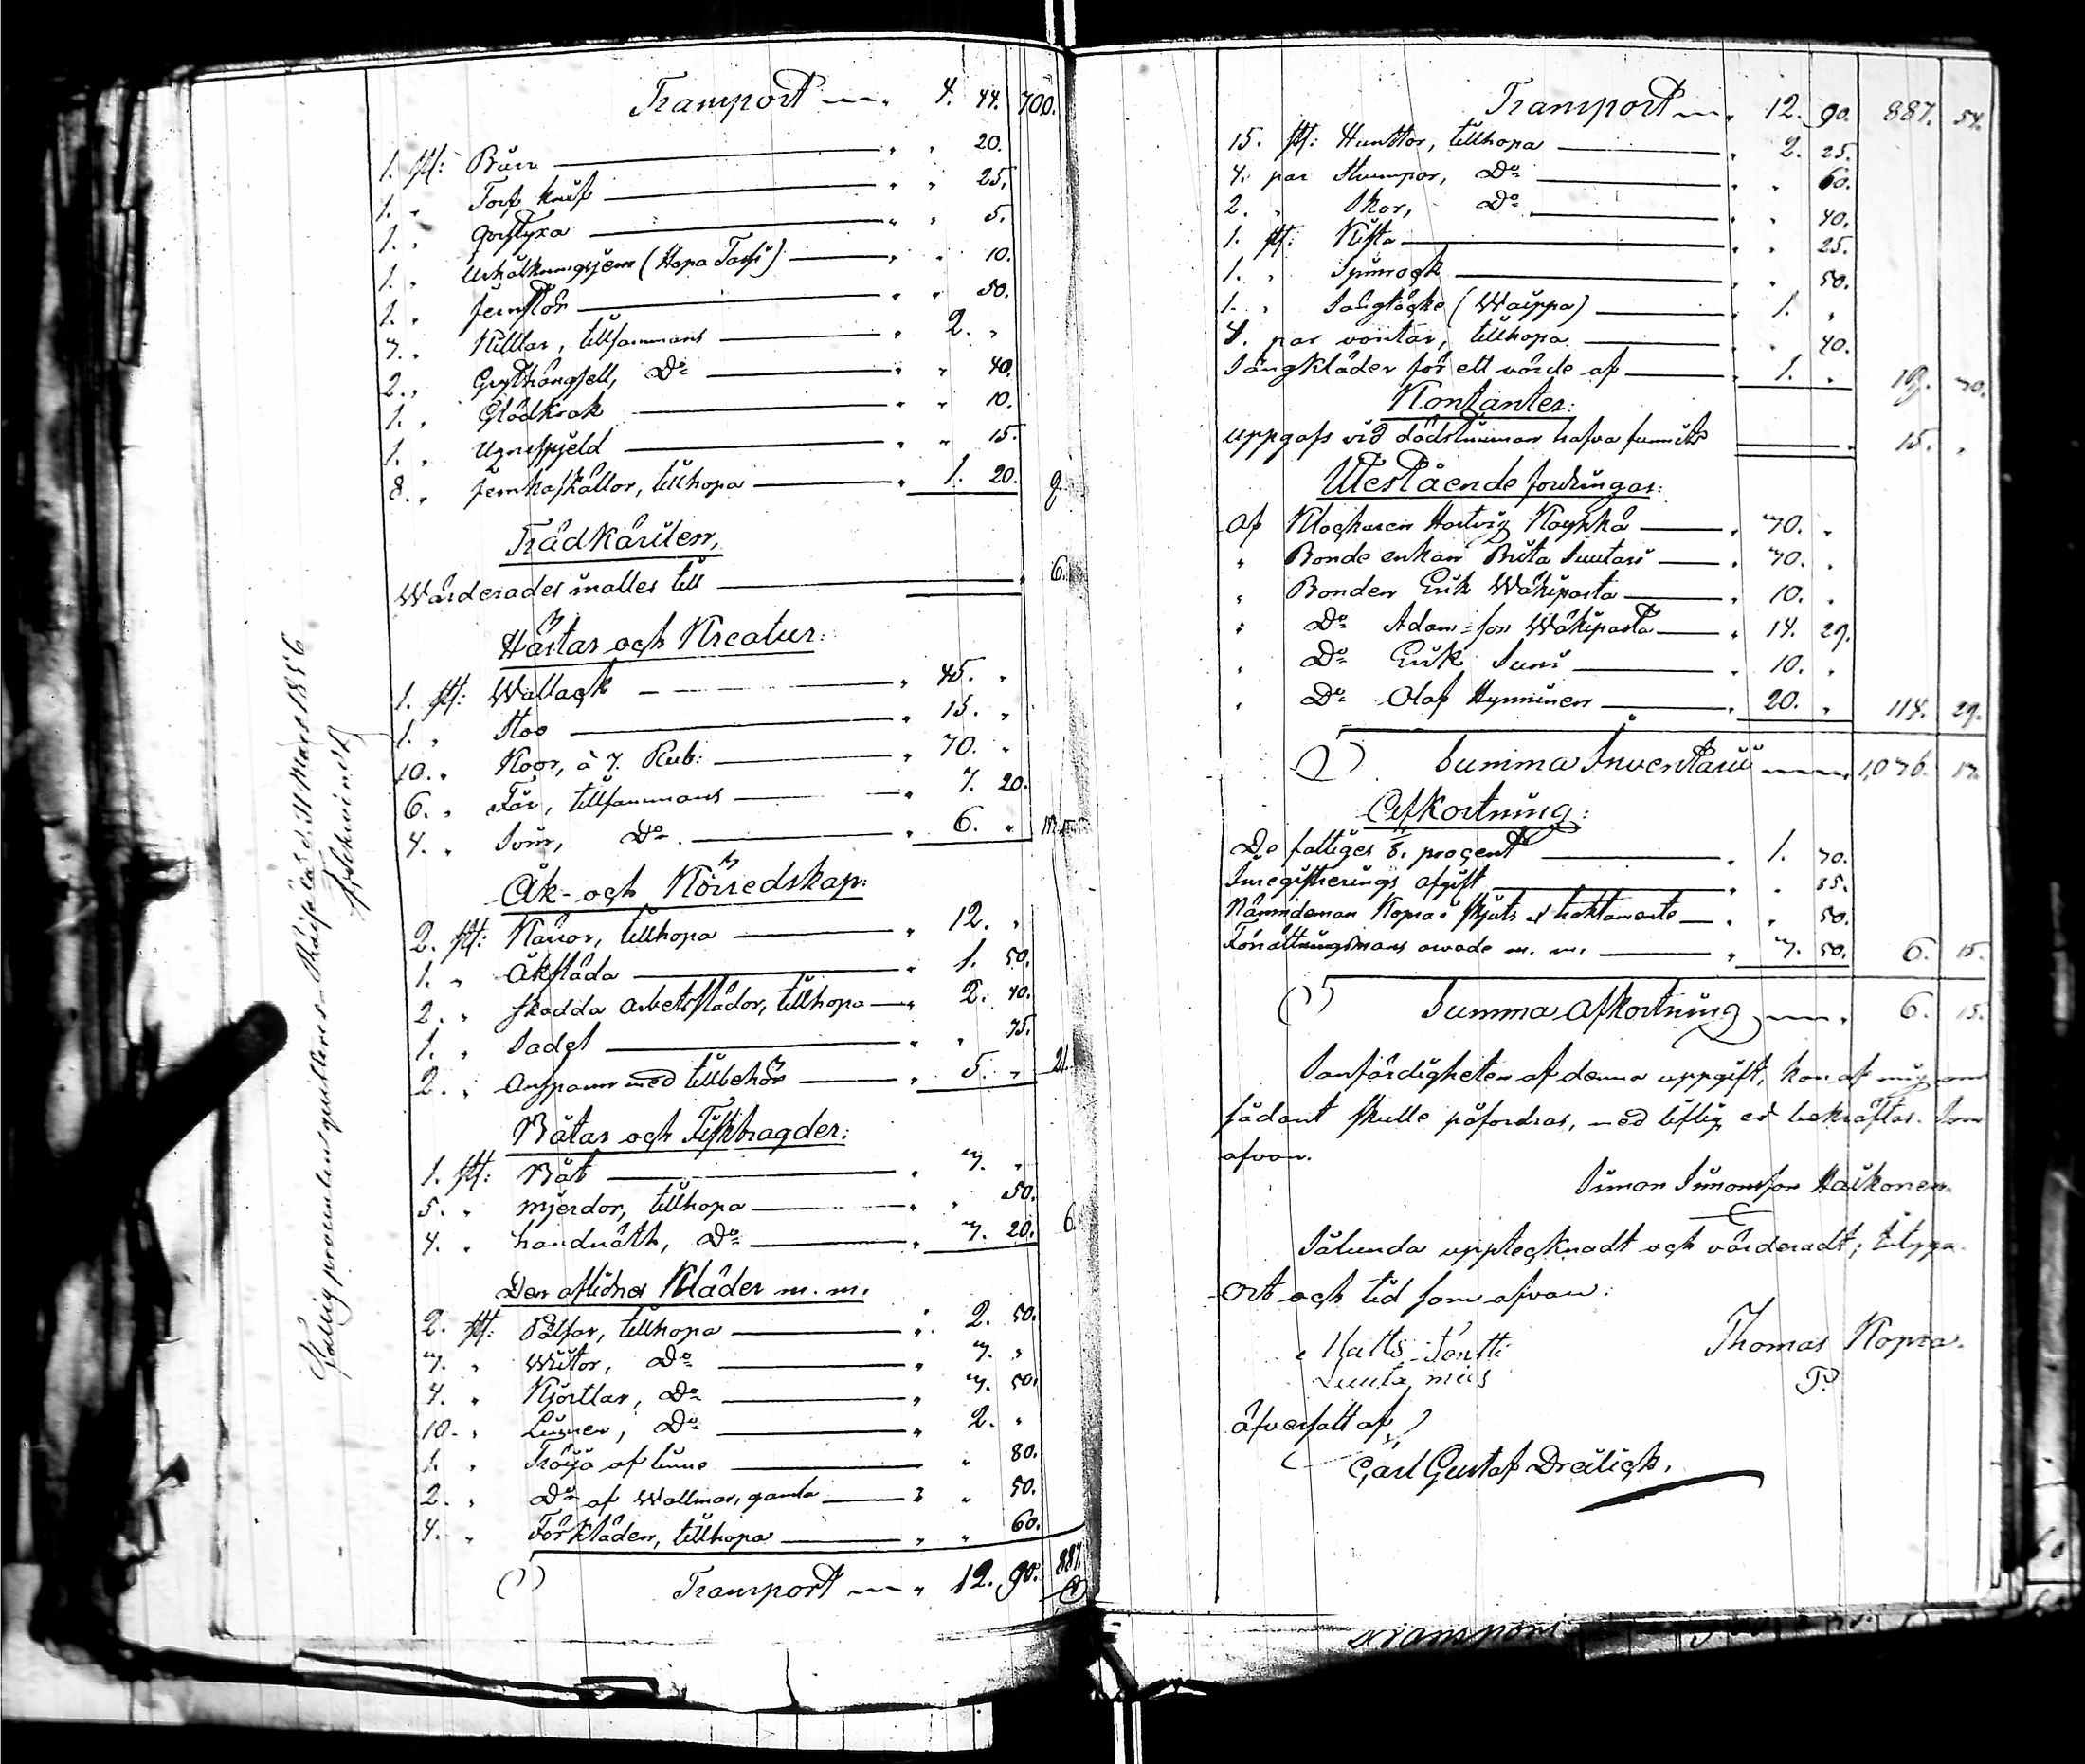 Transport 4. 44. 700.
1. st: Båra " " 20.
1. " Torf knif " " 25.
1. " " " 5.
1. " Urhålkningsjern (Kopa Tasji) " " 10.
1. " jernstör " " 50.
7. " Kittlar, tillsammans " 2. "
2. " Do " " 40.
1. " Glödkrok " " 10.
1. " Ugnsspjeld " " 15.
8. " tillhopa " 1. 20. 9.
Trädkärilen,
Wärderades inalles till 6.
Hästar och Kreatur:
1. st: Wallack " 45. "
1. " Stoo " 15. "
10. " Koor, à 7. Rub: " 70. "
6. " Får, tillsammans " 7. 20.
4. " Svin, Do " 6. "
Åk- och Körredskap:
2. st: Kärror, tillhopa " 12. "
1. " Åksläda " 1. 50.
2. " skodda arbetsslädor, tillhopa " 2. 40.
1. " Sadel " " 75.
2. " Anspann med tillbehör " 5. " 21.
Båtar och Fiskbragder:
1. st: Båt " 3. "
5. " mjerdor, tillhopa " " 50.
4. " handnäth, Do " 3. 20. 6.
Den aflidnes Kläder m. m.
2. st: Pälsar, tillhopa " 2. 50.
3. " Do " 3. "
4. " Kjortlar, Do " 3. 50.
10. " Linnen, Do " 2. "
1. " Tröja af linne " " 80.
2. " Do af Wallmar, gamla " " 50.
4. " Förkläden, tillhopa " " 60.
Transport " 12. 90. 887.
Transport 12. 90. 887. 54.
15. st: tillhopa " 2. 25.
4. par Strumpor, Do " " 60.
2. " Skor, Do " " 40.
1. st: Kista " " 25.
1. " Spinrock " " 50.
1. " Sängtäcke (Waippa) " 1. "
4. par vantar, tillhopa " " 40.
Sängkläder för ett värde af " 1. " 19. 30.
Kontanter:
uppgafs vid dödstimman hafva funnits 15. "
Utestående fordringar:
af Klockaren Hartvig " 30. "
" Bonde enkan Brita Suutari " 30. "
" Bonden Erik Wäkiparta " 10. "
" Do Adamsson Wäkiparta " 14. 29.
" Do Erik Suni " 10. "
" Do Olof Hynninen " 20. " 114. 29.
Summa Inventarii 1,036. 13.
Afkortning:
De fattiges procent " 1. 30.
Inregistrerings afgift " " 85.
Nämndeman Kopra's skjuts " " 50.
Förrättningsmans arvode m. m. " 3. 50. 6. 15.
Summa Afkortning 6. 15.
Sanfärdigheten af denna uppgift, kan af mig om
sådant skulle påfordras, med liflig ed bekräftas. Som
afvan.
Simon Simonsson Haikonen.
Sålunda upptecknadt och värderadt; intyga.
Ort och tid som afvan:
Matts Tontti Thomas Kopra.
Luutamies
åfversatt af
Carl Gustaf Dreilick.